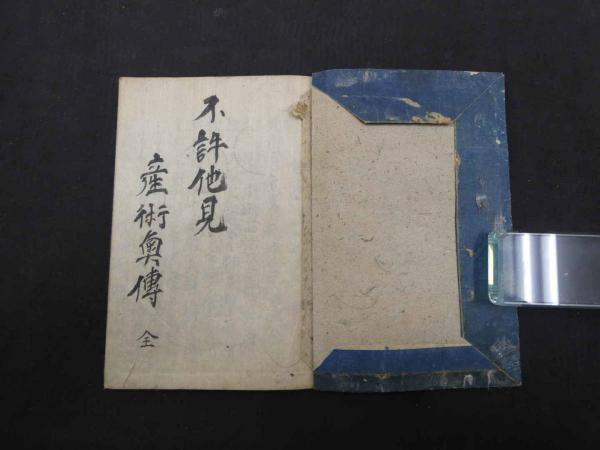 不許他見
産術奥傳 全